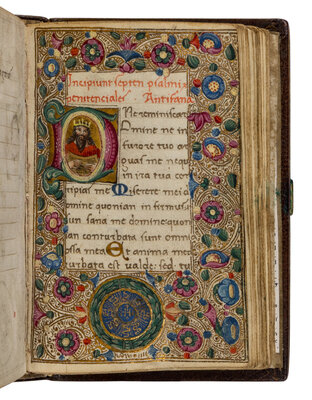 Incipiunt septem psalmi
penitenciales. Antifana
Ne reminiscar
Domine ne in
furore tuo ar
guas me neque
in ira tua cor
ripias me Miserere mei d
omine quoniam infirmus
sum sana me domine quon
iam conturbata sunt omni
ossa mea Et anima mea
turbata est valde: sed tu